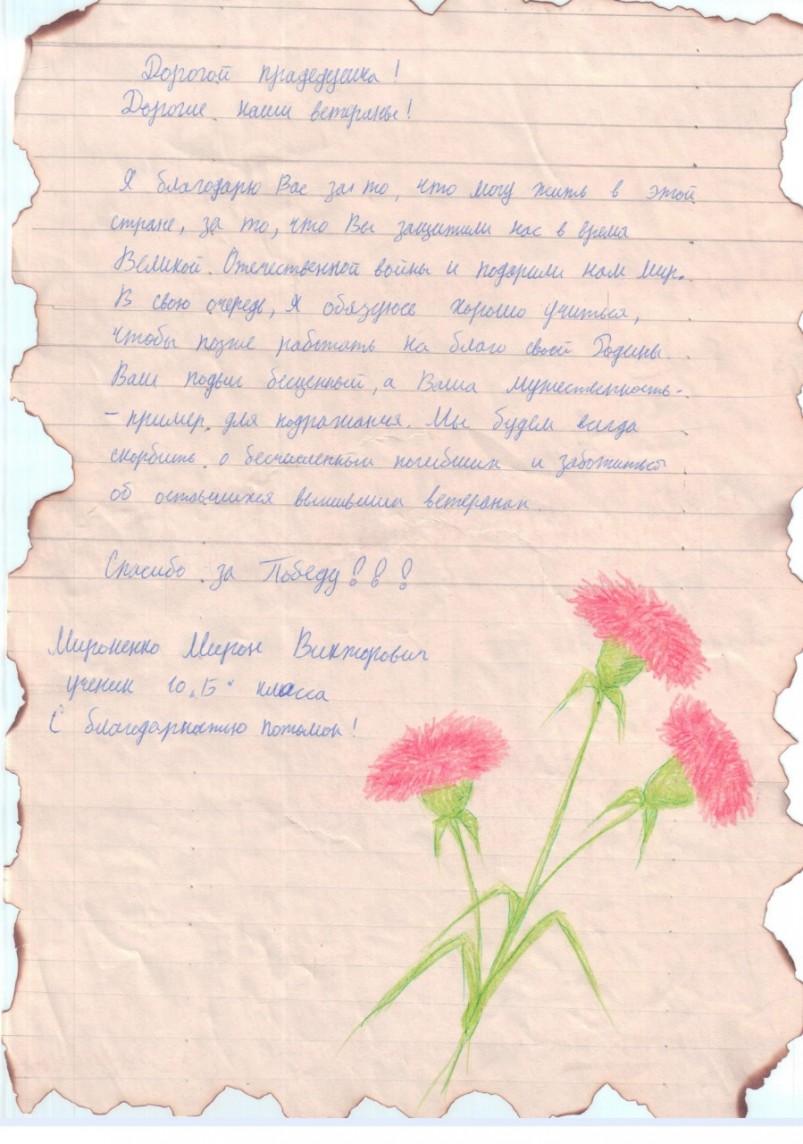 Дорогой прадедушка!
Дорогие наши ветераны!
Я благодарю Вас за то, что могу жить в этой
стране, за то, что Вы защитили нас в время
Великой Отечественной войны и подарили нам мир.
В свою очередь, я обязуюсь хорошо учиться,
чтобы позже работать на благо своей Родины.
Ваш подвиг бесценный, а Ваша мужественность-
- пример для подражания. Мы будем всегда
скорбить о бесчисленных погибших и заботиться
об оставшихся выживших ветеранах.
Спасибо за Победу!!!
Мироненко Мирон Викторович
ученик 10 „Б" класса
С благодарностью потомок!